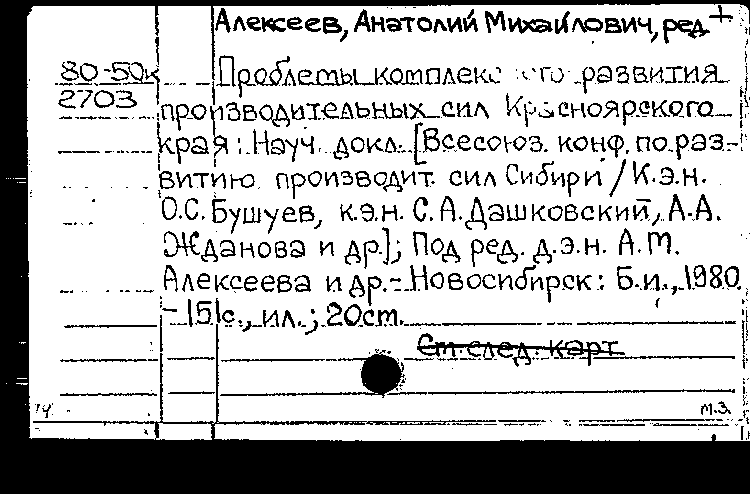 Алексеев, Анатолий Михайлович, ред +
80-50к Проблемы комплекс го развития
2703 производительных сил Красноярского
края: Науч. докл. [Всесоюз. конф. по раз-
витию производит. сил Сибири / К.э.н.
О.С. Бушуев, к.э.н. С.А. Дашковский, А.А.
Жданова и др.]; Под ред. д.э.н. А.М.
Алексеева и др. - Новосибирск: Б.и., 1980.
- 151с., ил.; 20см.
См. след. карт
14. М.З.